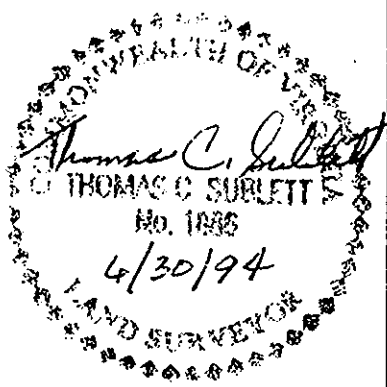 COMMONWEALTH OF VIRGINIA
Thomas C. Sublett
THOMAS C. SUBLETT
No.
4/30/94
LAND SURVEYOR